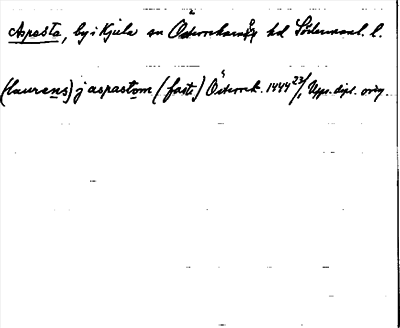 Aspasta, by i Kjula sn Österrekarne hd Södermanl. l.
(laurens) j aspastom (faste) Österrek. 1444 23/1 Upps. dipl. orig.